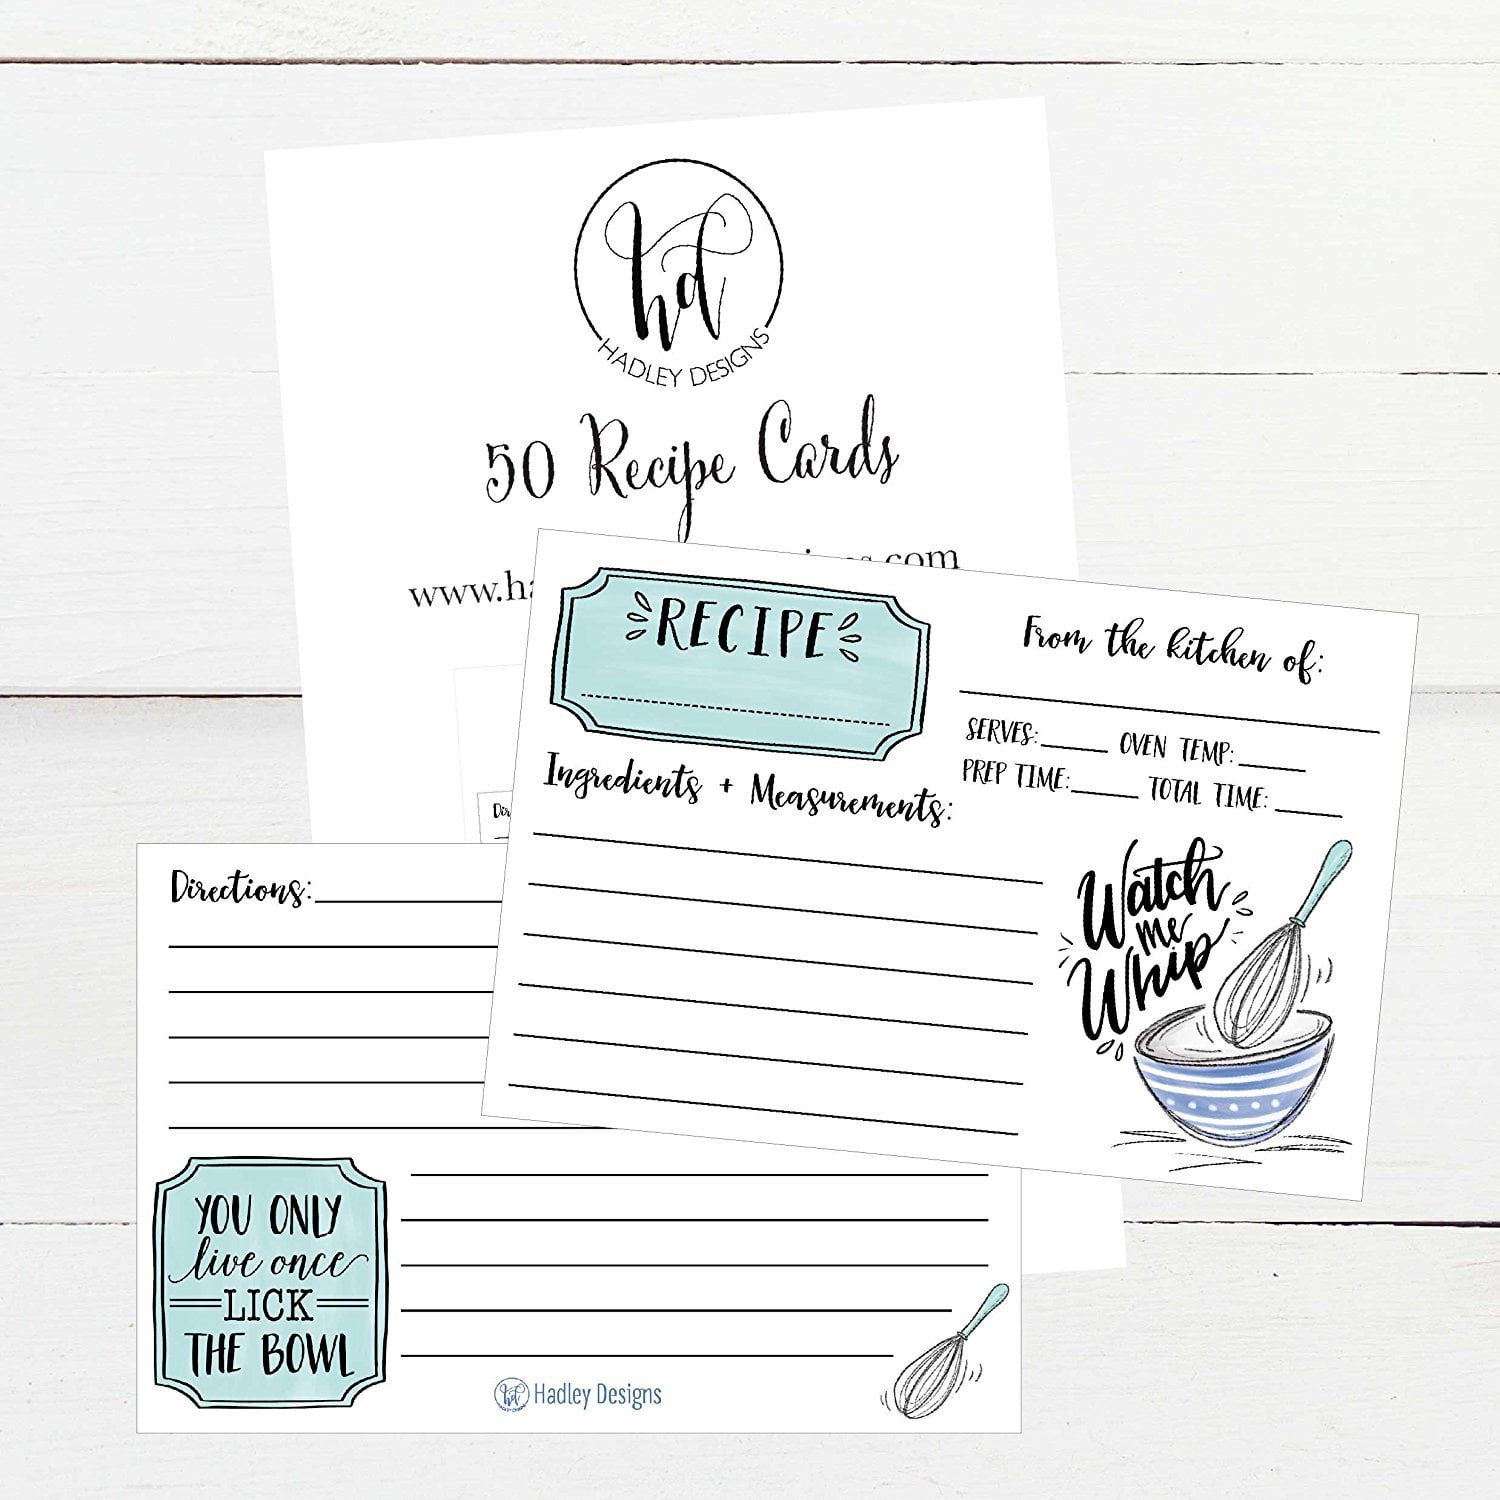 hd
HADLEY DESIGNS
50 Recipe Cards
www.ha
.com
RECIPE
From the kitchen of:
SERVES: OVEN TEMP:
PREP TIME: TOTAL TIME:
Ingredients + Measurements:
Watch
me
Whip
Directions:
YOU ONLY
live once
LICK
THE BOWL
hd Hadley Designs